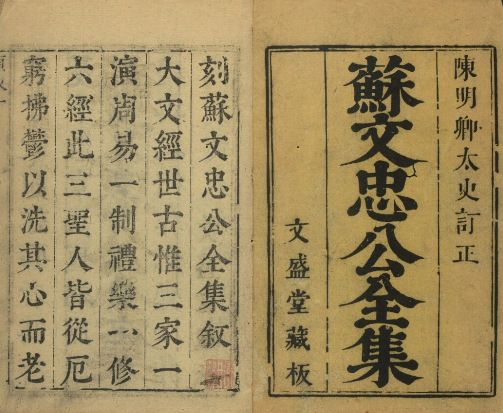 陳明卿太史訂正
蘇文忠公全集
文盛堂藏板
刻蘇文忠公全集敘
大文經世古惟三家一
演周易一制禮樂一修
六經此三聖人皆從厄
窮拂鬱以洗其心而老